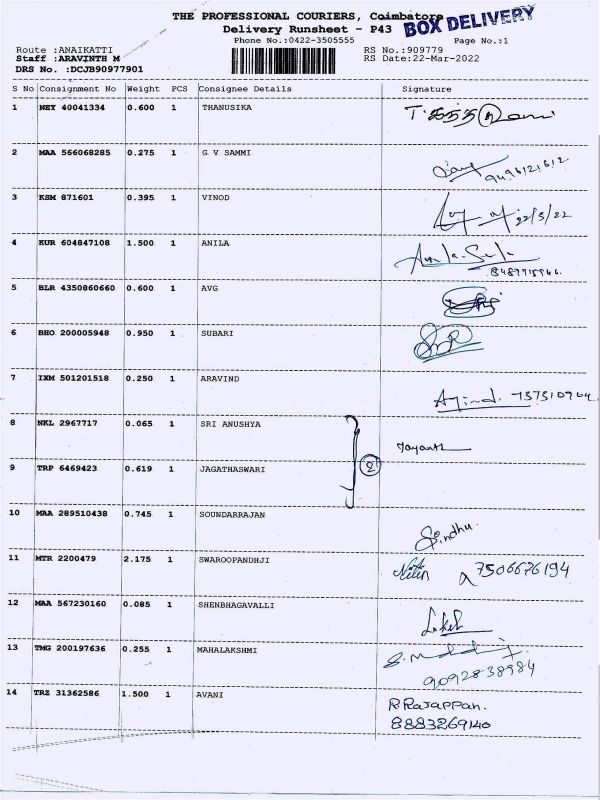 THE PROFESSIONAL COURIERS, Coimbatore
BOX DELIVERY
Delivery Runsheet - P43
Phone No.:0422-3505555
Page No.:1
Route :ANAIKATTI
RS No.:909779
Staff :ARAVINTH M
RS Date:22-Mar-2022
DRS No. :DCJB90977901
S No Consignment No Weight PCS Consignee Details Signature
1 NEY 40041334 0.600 1 THANUSIKA
2 MAA 566068285 0.275 1 G V SAMMI
9496121612
3 KSM 871601 0.395 1 VINOD
22/3/22
4 KUR 604847108 1.500 1 ANILA
5 BLR 4350860660 0.600 1 AVG
6 BHO 200005948 0.950 1 SUBARI
7 IXM 501201518 0.250 1 ARAVIND
8 NKL 2967717 0.065 1 SRI ANUSHYA
Jayanth
2
9 TRP 6469423 0.619 1 JAGATHASWARI
10 MAA 289510438 0.745 1 SOUNDARRAJAN
Sindhu.
11 MTR 2200479 2.175 1 SWAROOPANDHJI
Nitin 7506676194
12 MAA 567230160 0.085 1 SHENBHAGAVALLI
13 TMG 200197636 0.255 1 MAHALAKSHMI
9092838984
14 TRZ 31362586 1.500 1 AVANI
R Rajappan.
8883269140